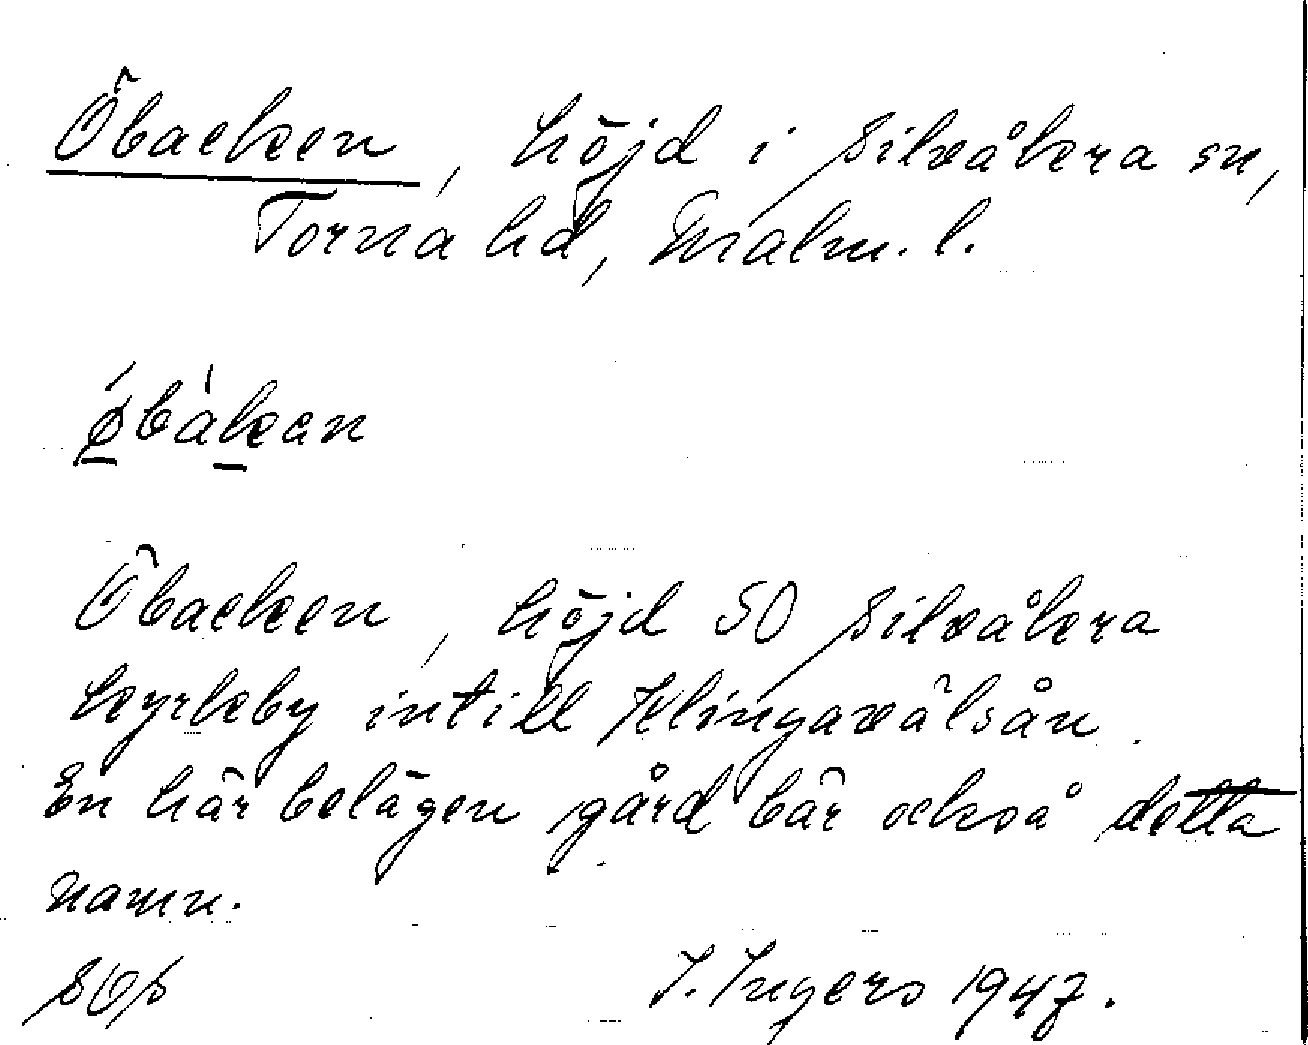 Öbacken, höjd i Silvåkra sn,
Torna hd, Malm. l.
øbakan
Öbacken, höjd SO Silvåkra
kyrkby intill Klingavälsån.
En här belägen gård bär också detta
namn.
I. Ingers 1947.